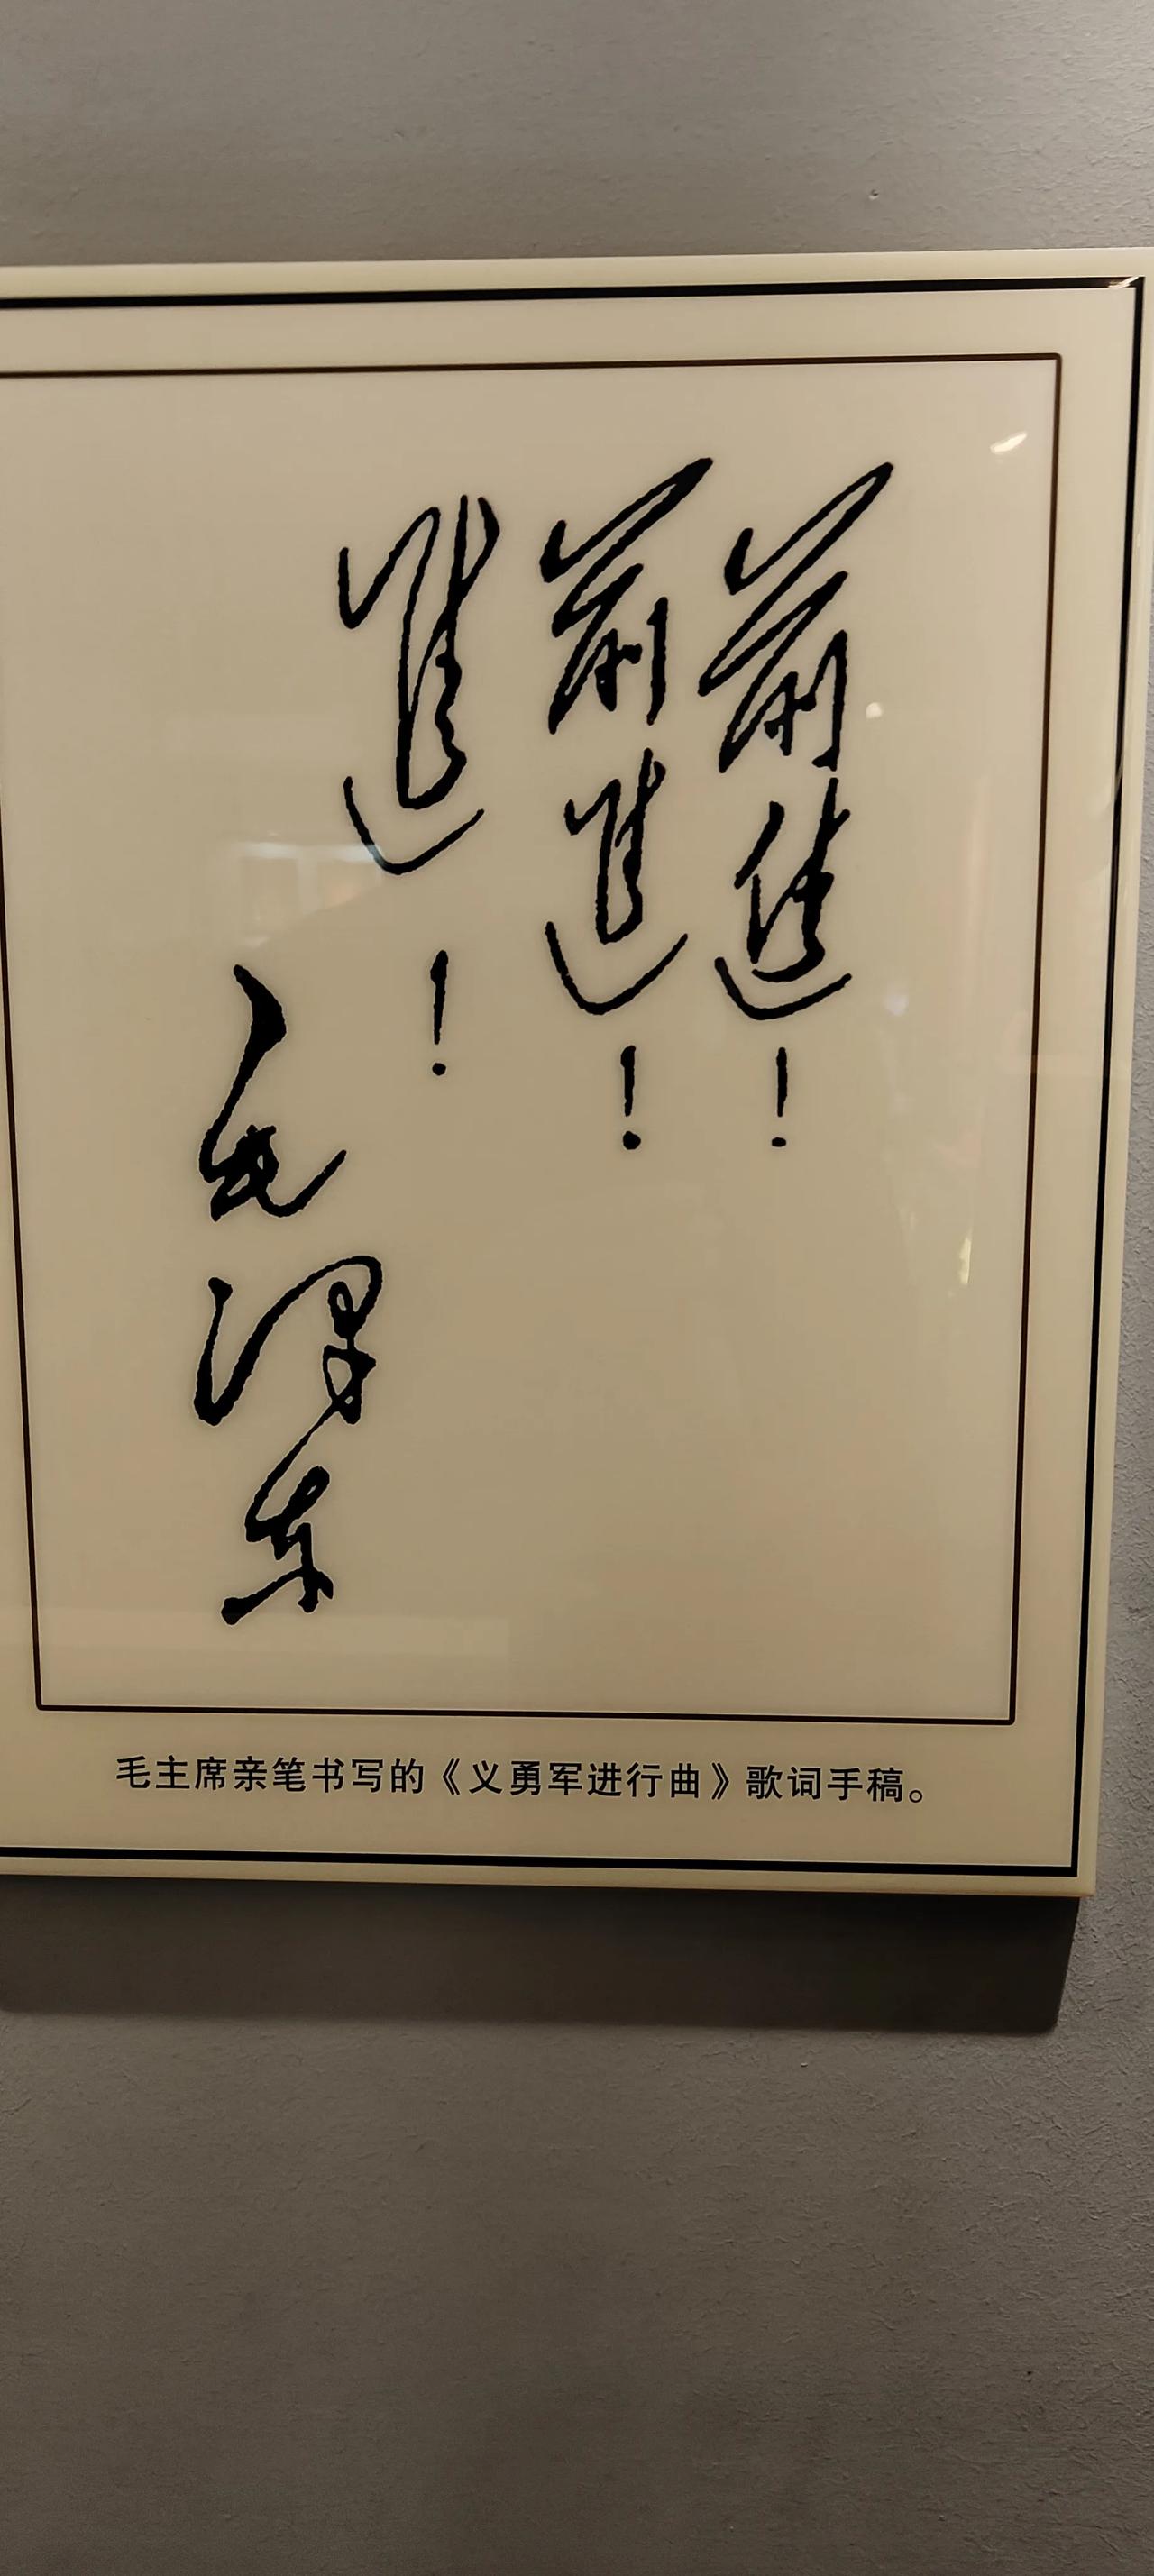 前進！
前進！
進！
毛泽东
毛主席亲笔书写的《义勇军进行曲》歌词手稿。